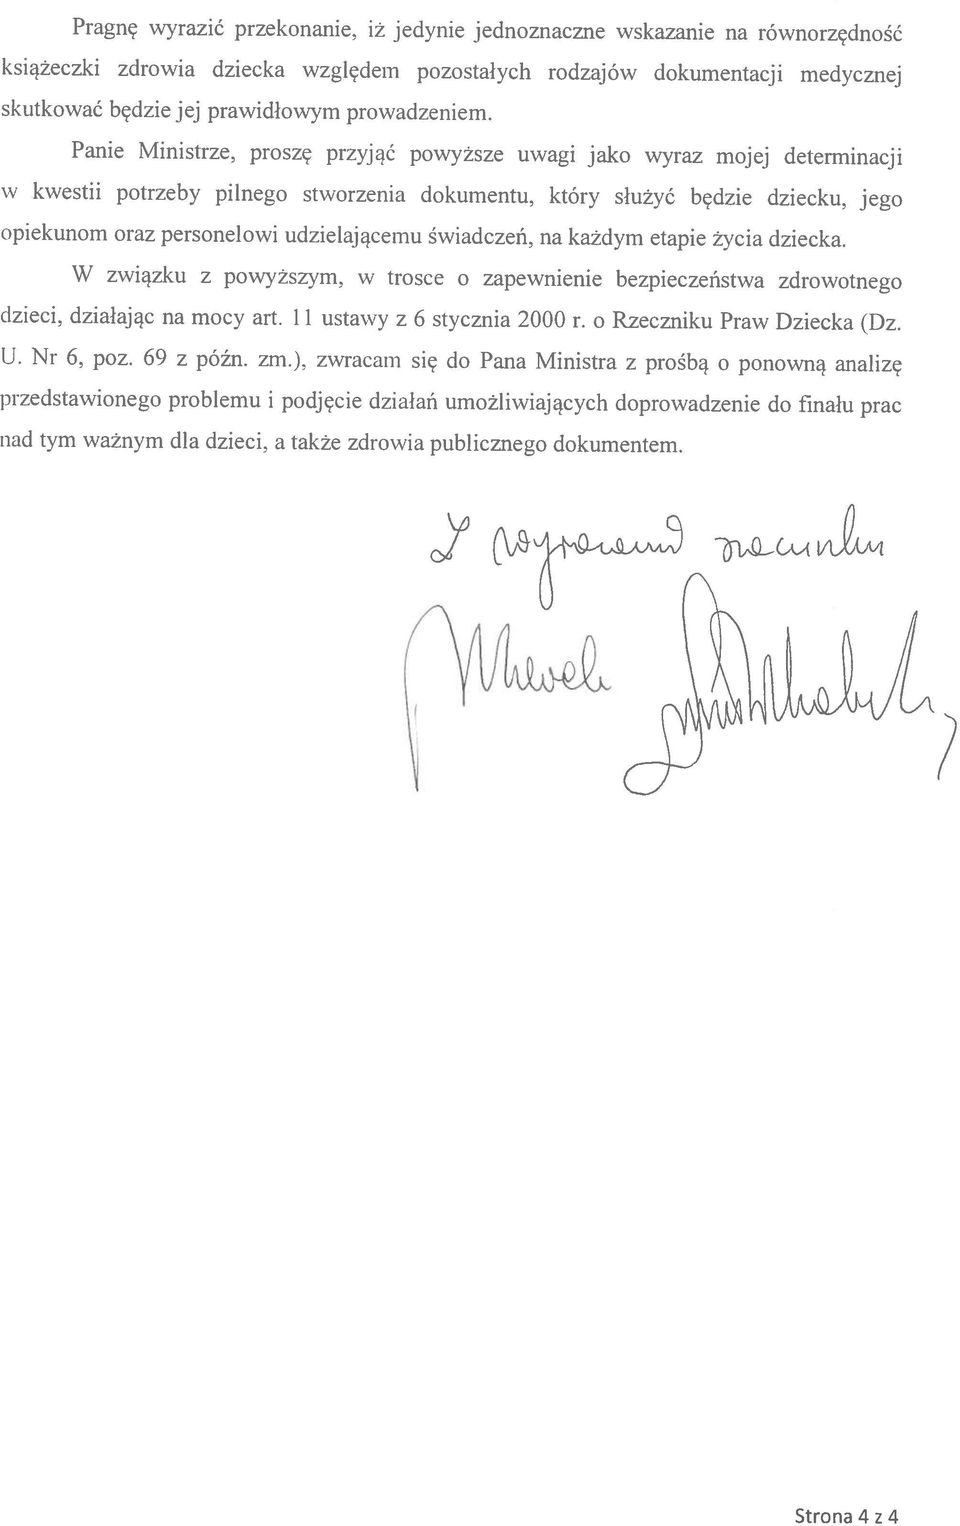 Pragnę wyrazić przekonanie, iż jedynie jednoznaczne wskazanie na równorzędność
książeczki zdrowia dziecka względem pozostałych rodzajów dokumentacji medycznej
skutkować będzie jej prawidłowym prowadzeniem.
Panie Ministrze, proszę przyjąć powyższe uwagi jako wyraz mojej determinacji
w kwestii potrzeby pilnego stworzenia dokumentu, który służyć będzie dziecku, jego
opiekunom oraz personelowi udzielającemu świadczeń, na każdym etapie życia dziecka.
W związku z powyższym, w trosce o zapewnienie bezpieczeństwa zdrowotnego
dzieci, działając na mocy art. 11 ustawy z 6 stycznia 2000 r. o Rzeczniku Praw Dziecka (Dz.
U. Nr 6, poz. 69 z późn. zm.), zwracam się do Pana Ministra z prośbą o ponowną analizę
przedstawionego problemu i podjęcie działań umożliwiających doprowadzenie do finału prac
nad tym ważnym dla dzieci, a także zdrowia publicznego dokumentem.
Z wyrazami szacunku
Strona 4 z 4